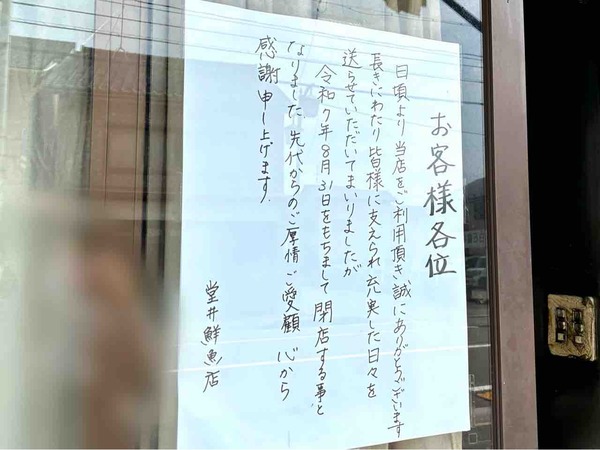 お客様各位
日頃より当店をご利用頂き、誠にありがとうございます
長きにわたり皆様に支えられ充実した日々を
送らせていただいてまいりましたが
令和7年8月31日をもちまして閉店する事と
なりました。先代からのご厚情ご愛顧 心から
感謝申し上げます。
堂井鮮魚店